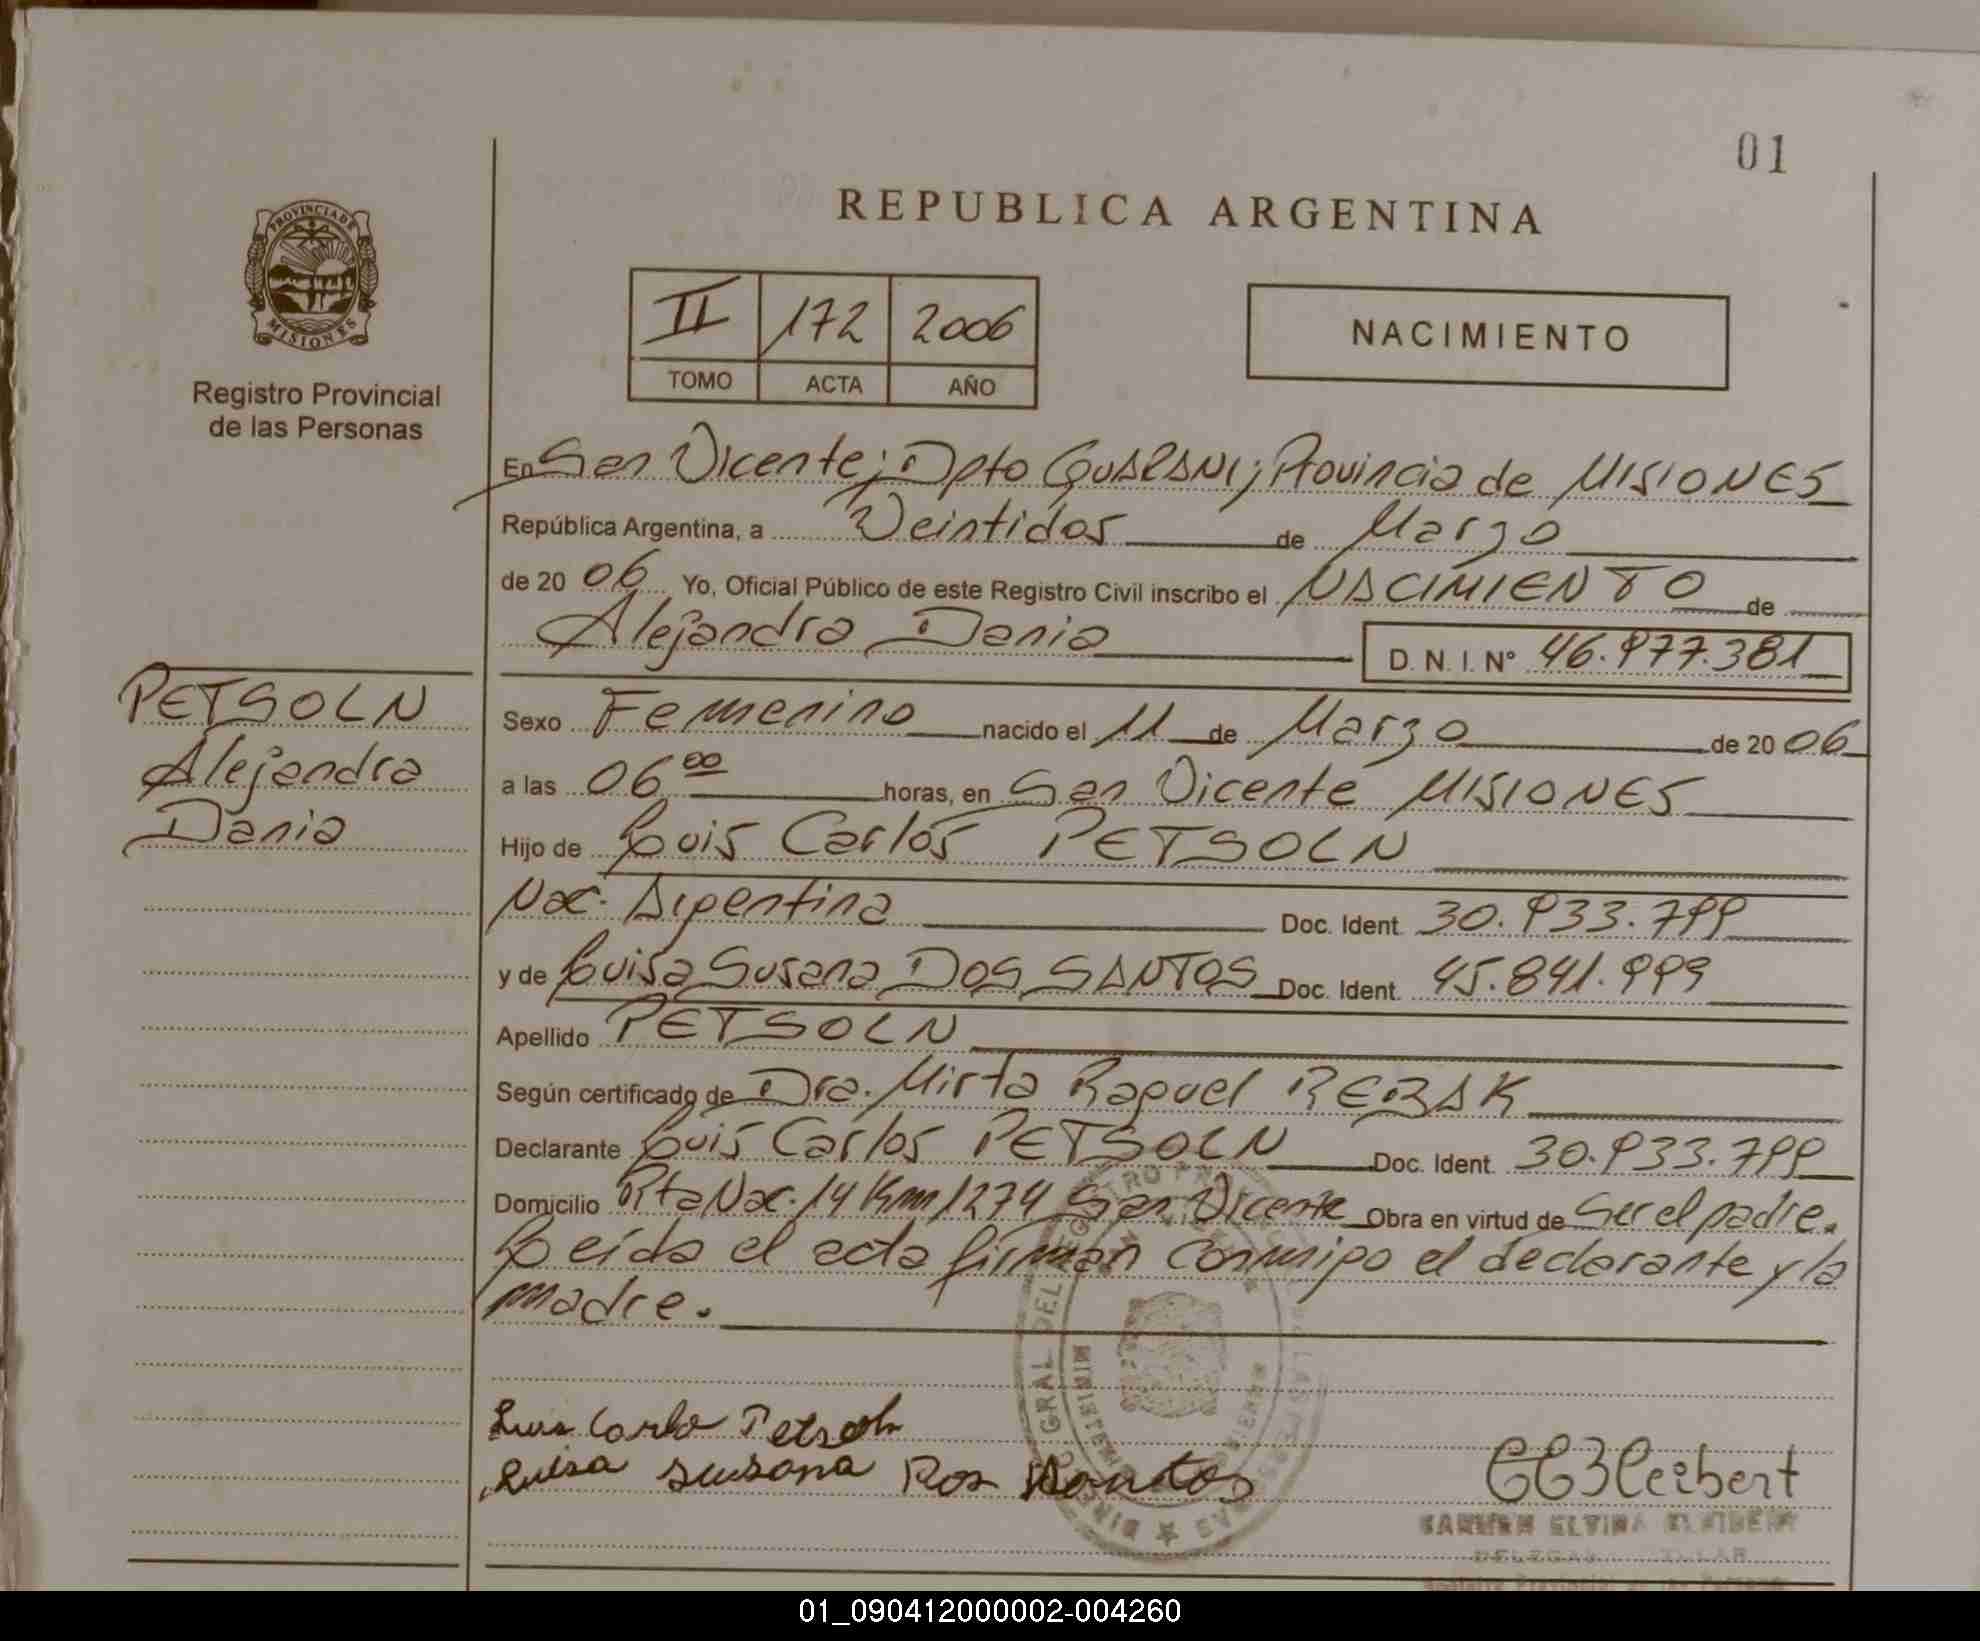 01
REPUBLICA ARGENTINA
PROVINCIA DE
MISIONES
Registro Provincial
de las Personas
II 172 2006
TOMO ACTA AÑO
NACIMIENTO
En San Vicente; Dpto GUARANI; Provincia de MISIONES
República Argentina, a Veintidos de Marzo
de 20 06 Yo, Oficial Público de este Registro Civil inscribo el NACIMIENTO de
Alejandra Dania D. N. I. N° 46.977.381
PETSOLN
Alejandra
Dania
Sexo Femenino nacido el 11 de Marzo de 20 06
a las 06 00 horas, en San Vicente MISIONES
Hijo de Luis Carlos PETSOLN
Nac. Argentina Doc. Ident. 30.933.799
y de Luisa Susana DOS SANTOS Doc. Ident. 45.841.999
Apellido PETSOLN
Según certificado de Dra. Mirta Raquel REBAK
Declarante Luis Carlos PETSOLN Doc. Ident. 30.933.799
Domicilio Rta Nac. 14 Km 1274 San Vicente Obra en virtud de Ser el padre.
Leída el acta firman conmigo el declarante y la
madre.
Luis Carlo Petsoln
Luisa Susana Dos Santos
CARMEN ELVIRA
01_090412000002-004260